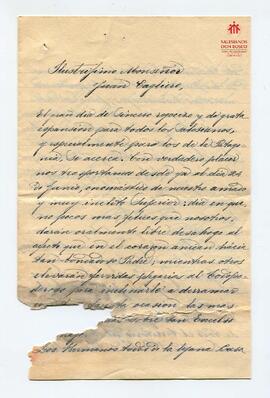 SALESIANOS
DON BOSCO
Ilustrísimo Monseñor
Juan Cagliero,
El gran día de sincero regocijo y de grata
expansión para todos los Salesianos,
y especialmente para los de la Patago
nia, se acerca. Con verdadero placer
nos transportamos desde ya al día 24
de Junio, onomástico de nuestro amado
y muy ínclito Superior: día en que,
no pocos mas felices que nosotros,
darán oralmente libre desahogo al
afecto que en el corazon anidan hácia
tan bondadoso Padre; mientras otros
elevarán fervidas plegarias al Todopo
deroso para inclinarle a derramar
en esta ocasión las mas
sobre tan Excelso
Los Hermanos todos de la Casa